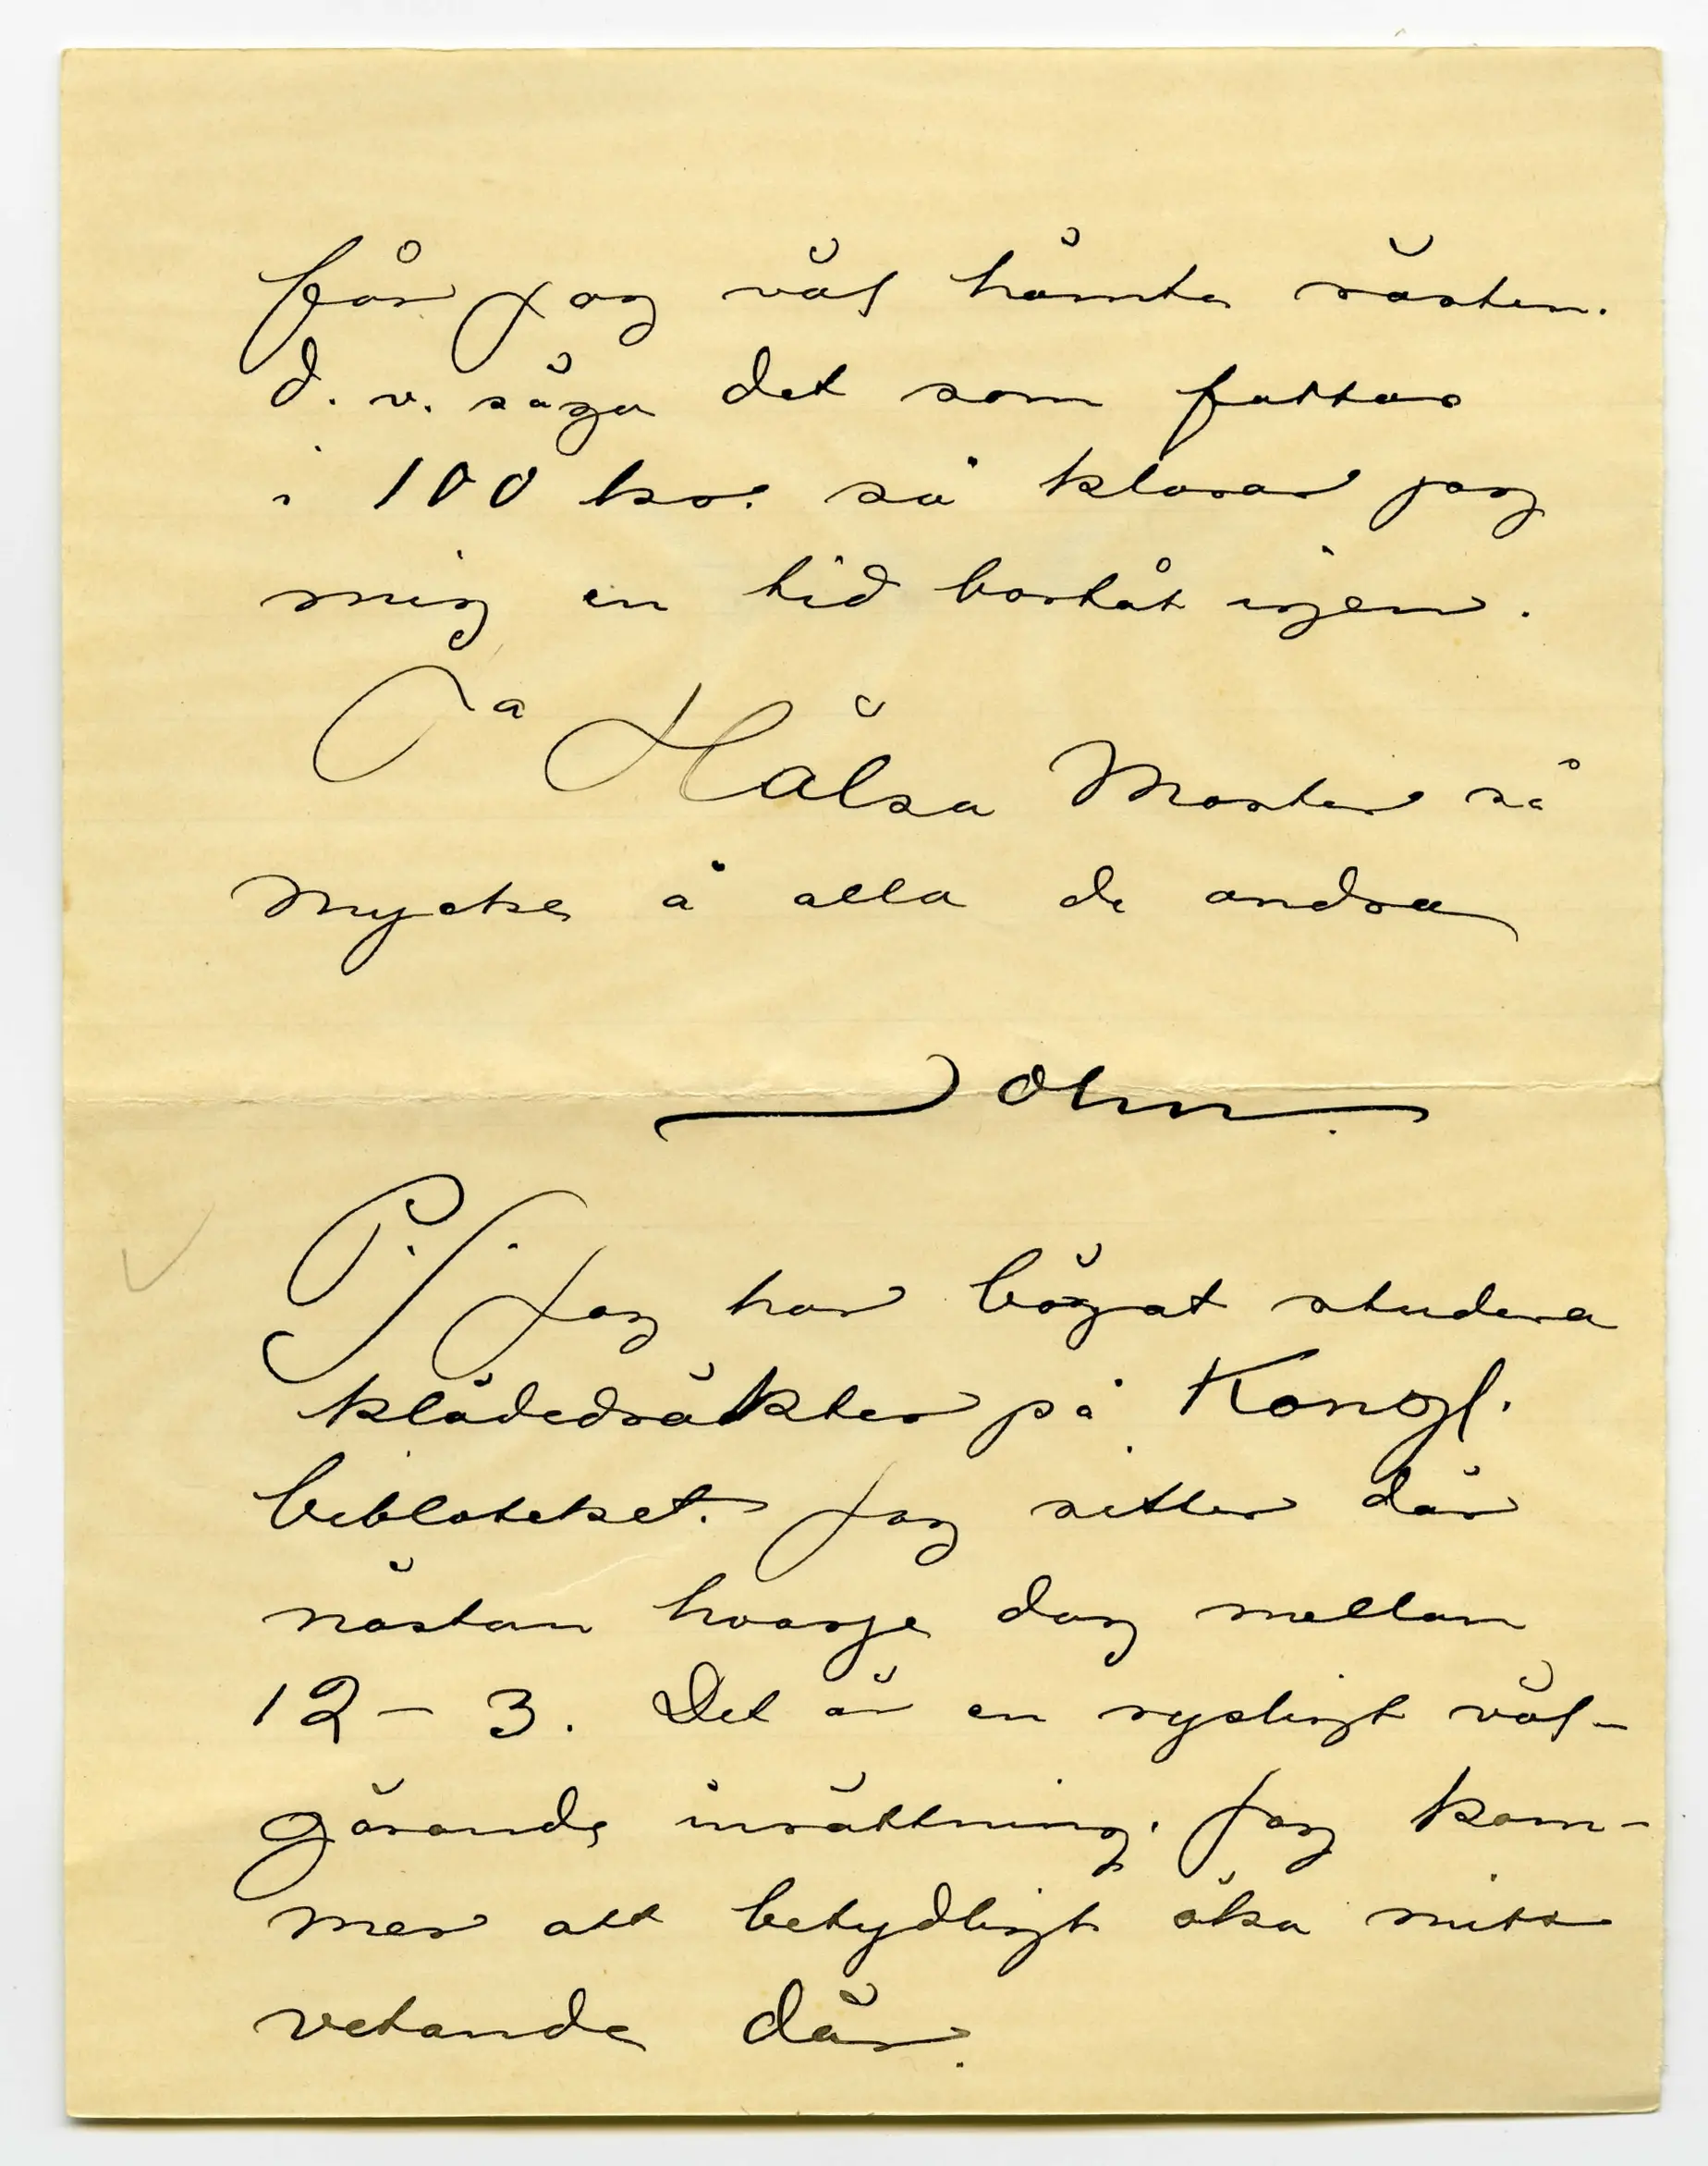 får jag väl hämta rästen.
d. v. säga det som fattas
i 100 kr. så klarar jag
mig en tid bortåt igen.
Ja Hälsa Moster så
mycke å alla de andra
John.
P.S. Jag har bögat studera
klädedräkter på Kongl.
bibloteket. Jag sitter där
nästan hvarje dag mellan
12 – 3. Det är en rysligt väl-
görande inrättning. Jag kom-
mer att betydligt öka mitt
vetande där.